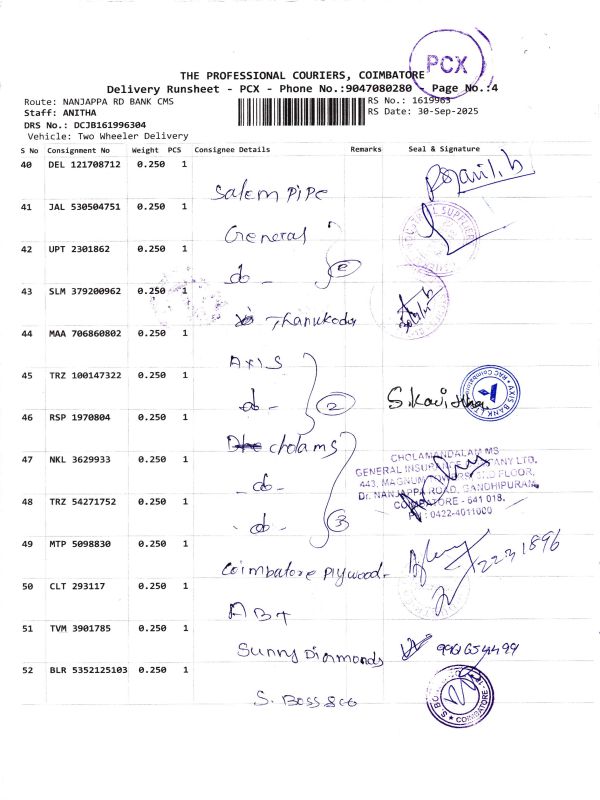 PCX
THE PROFESSIONAL COURIERS, COIMBATORE
Delivery Runsheet - PCX - Phone No.:9047080280 - Page No.:4
Route: NANJAPPA RD BANK CMS
RS No.: 1619963
Staff: ANITHA
RS Date: 30-Sep-2025
DRS No.: DCJB161996304
Vehicle: Two Wheeler Delivery
S No Consignment No Weight PCS Consignee Details Remarks Seal & Signature
40 DEL 121708712 0.250 1
Salem PiPe
41 JAL 530504751 0.250 1
General
42 UPT 2301862 0.250 1
do -
43 SLM 379200962 0.250 1
44 MAA 706860802 0.250 1
AXIS
45 TRZ 100147322 0.250 1
do - 2
S. Kavitha
AXIS BANK
46 RSP 1970804 0.250 1
chola ms
47 NKL 3629933 0.250 1
- do -
CHOLAMANDALAM MS
GENERAL INSURANCE COMPANY LTD.
443, MAGNUM TOWERS, 2ND FLOOR,
Dr. NANJAPPA ROAD, GANDHIPURAM,
COIMBATORE - 641 018.
PH : 0422-4011000
48 TRZ 54271752 0.250 1
- do - 3
49 MTP 5098830 0.250 1
Coimbatore Plywood -
50 CLT 293117 0.250 1
ABT
51 TVM 3901785 0.250 1
Sunny Diamonds
9961654499
52 BLR 5352125103 0.250 1
S. Boss &co
COIMBATORE